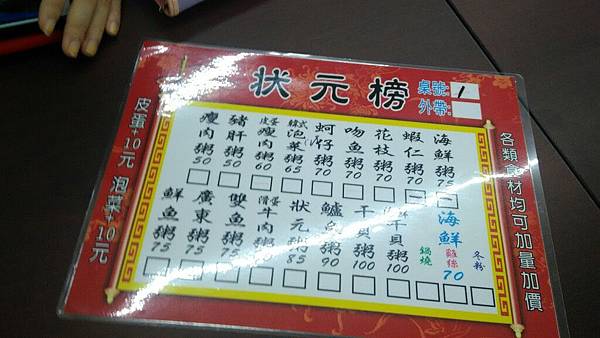 狀元榜
桌號: 1
外帶:
皮蛋+10元 泡菜+10元
各類食材均可加量加價
瘦肉粥 50
豬肝粥 50
皮蛋瘦肉粥 60
韓式泡菜粥 65
蚵仔粥 70
吻魚粥 70
花枝粥 70
蝦仁粥 70
海鮮粥 75
鮮魚粥 75
廣東粥 75
雙魚粥 75
滑蛋牛肉粥
狀元粥 85
鱸魚粥 90
干貝粥 100
干貝粥 100
海鮮
鍋燒
雞絲
冬粉
70